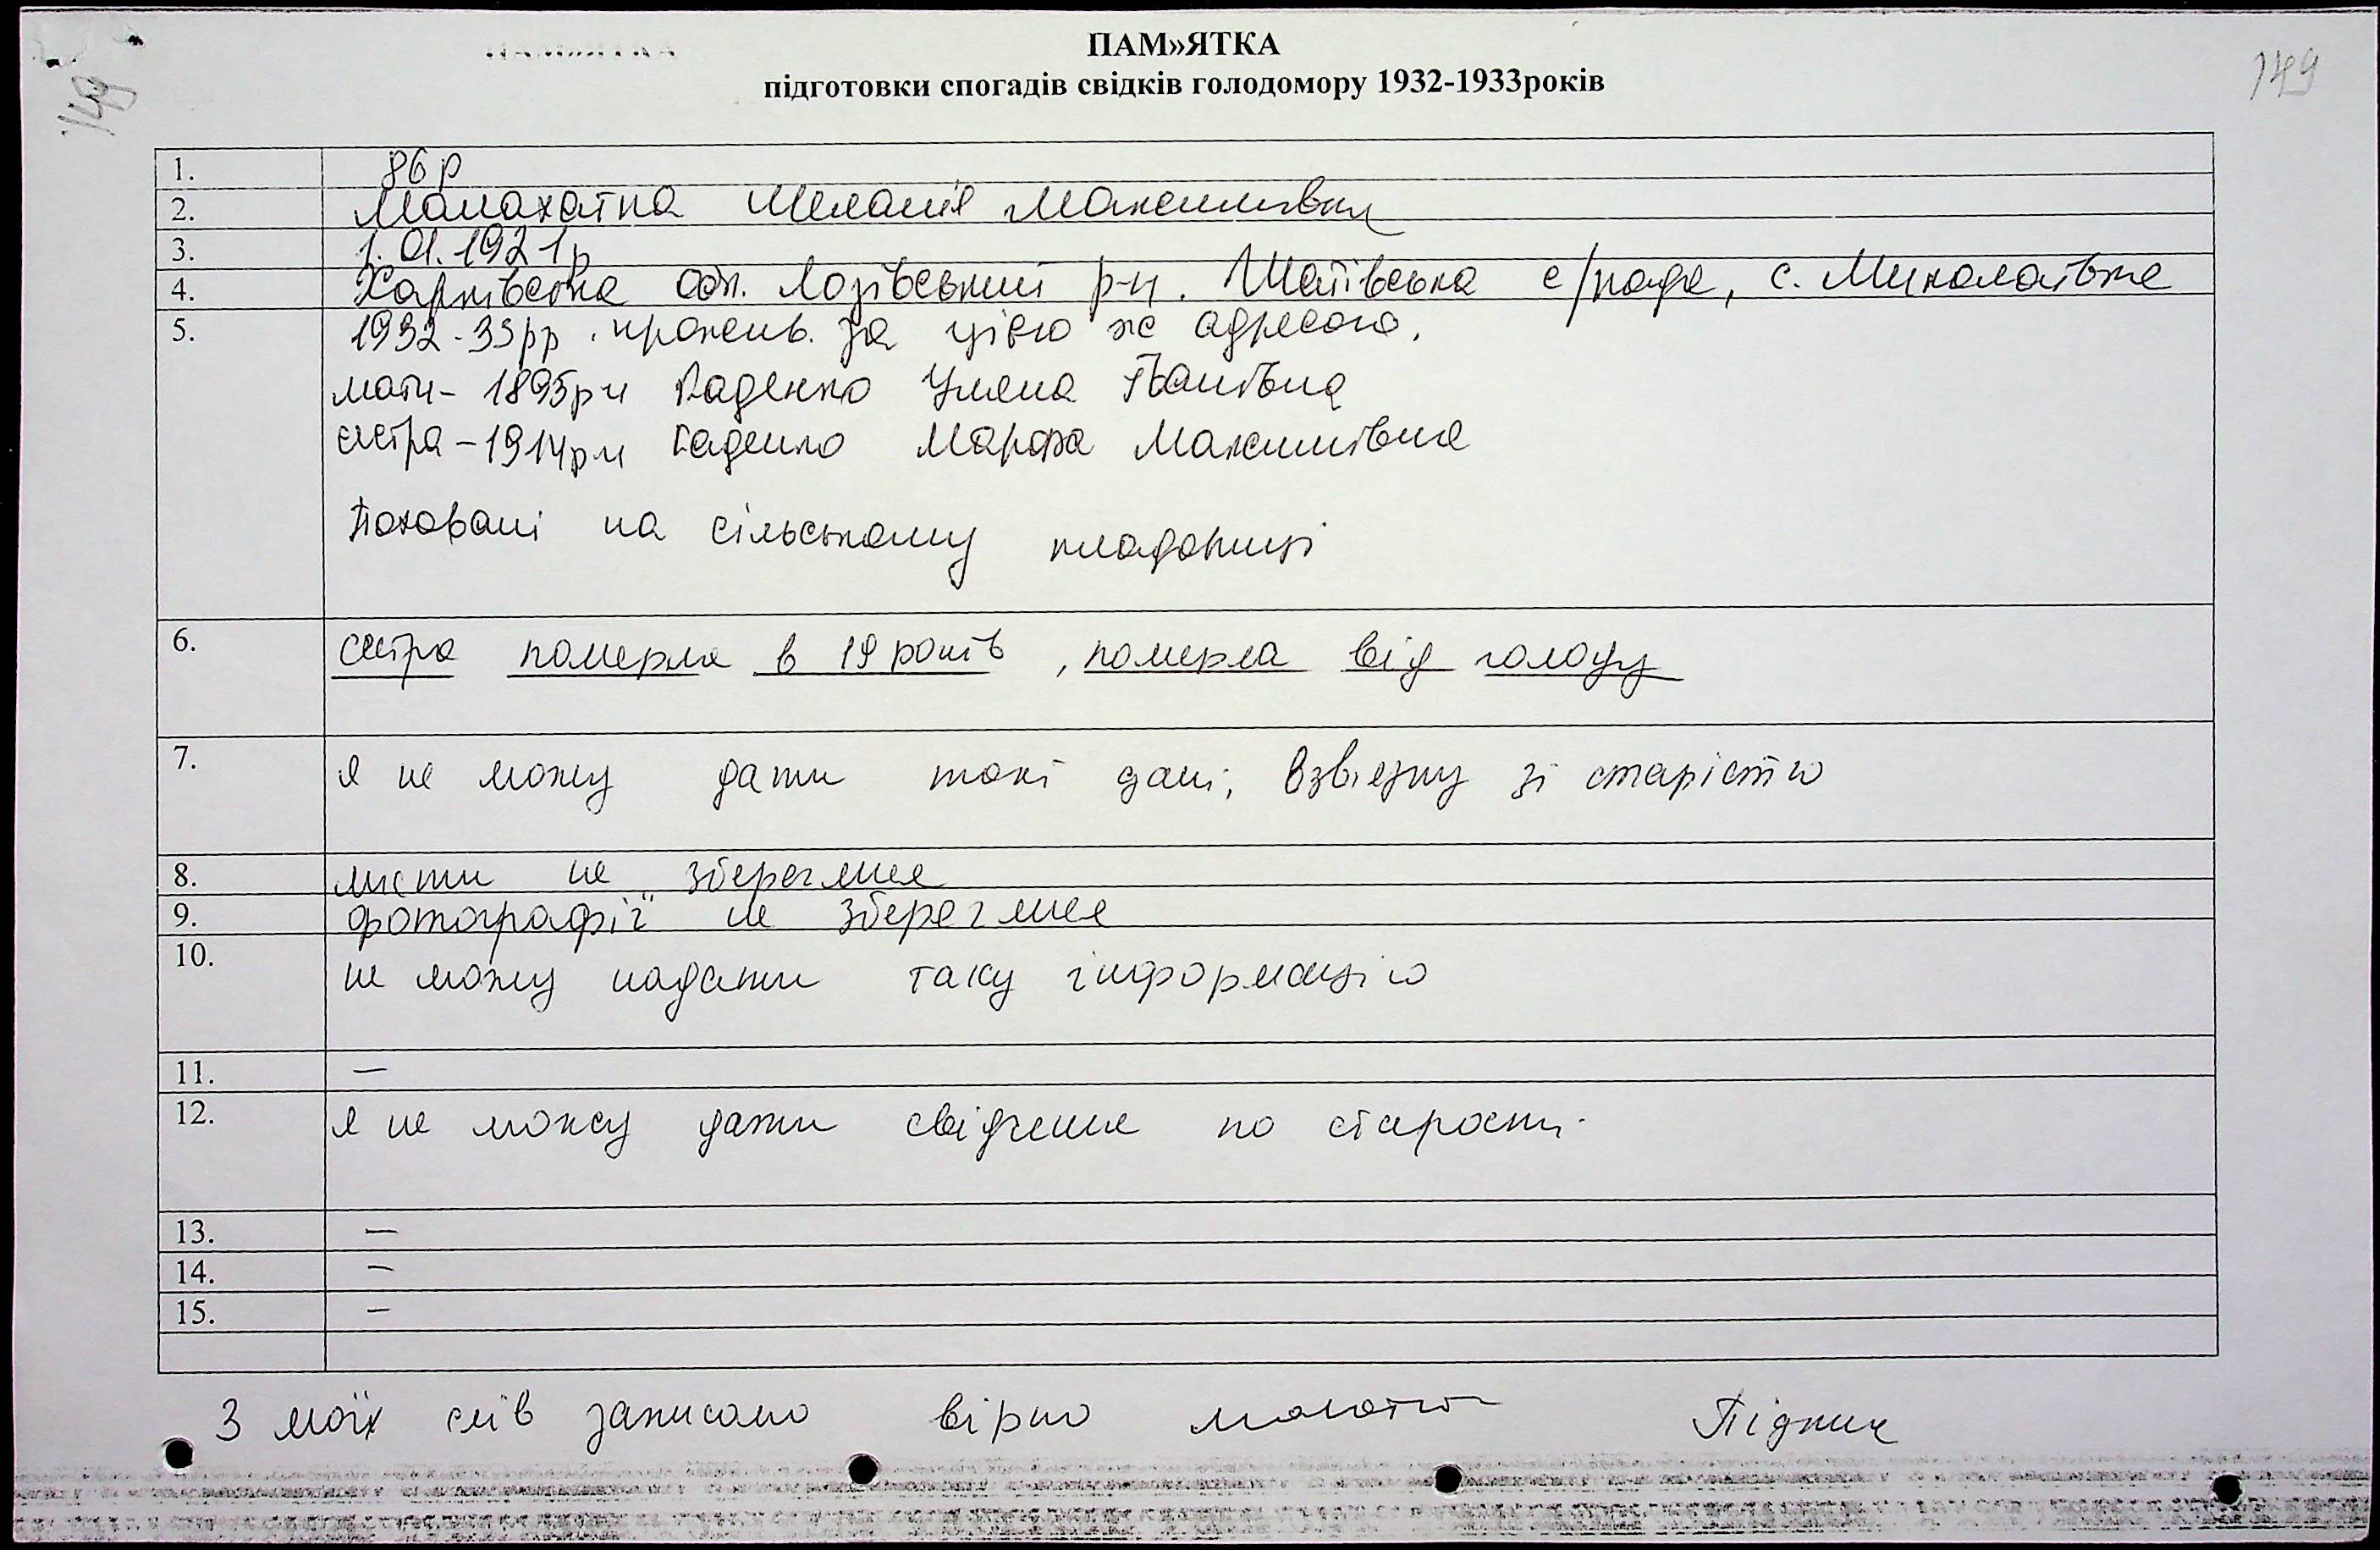 ПАМ»ЯТКА
підготовки спогадів свідків голодомору 1932-1933років
149
149
1. 86 р
2. Меланія Максимівна
3. 1.01.1921р
4. Харківська обл. Лозівський р-н. Шатівська с/рада, с. Миколаївка
5. 1932-33рр. прожив. за цією ж адресою.
мати - 1895рн Раденко Уляна Іванівна
сестра - 1914рн Раденко Марфа Максимівна
Поховані на сільському кладовищі
6. сестра померла в 19 років, померла від голоду
7. я не можу дати такі дані, взвязку зі старістю
8. листи не збереглися
9. фотографії не збереглися
10. не можу надати таку інформацію
11. —
12. я не можу дати свідчення по старости.
13. —
14. —
15. —
З моїх слів записано вірно Підпис